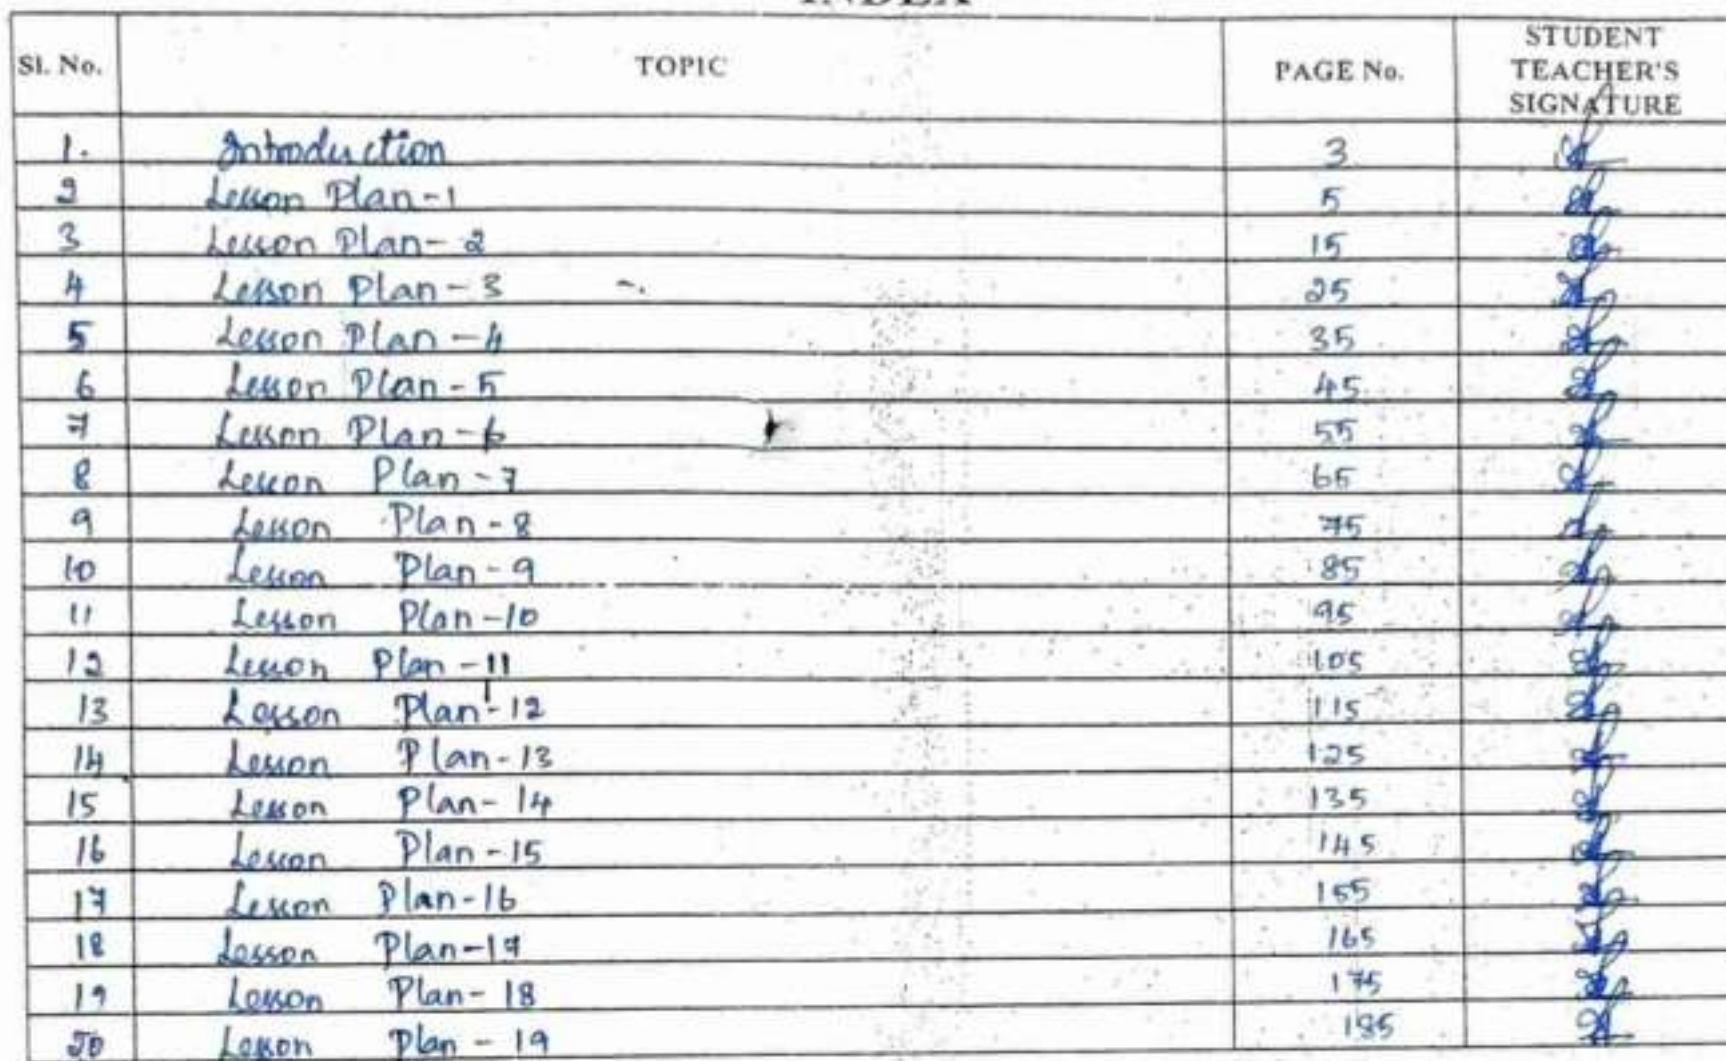 INDEX
Sl. No. TOPIC PAGE No. STUDENT TEACHER'S SIGNATURE
1. Introduction 3
2 Lesson Plan-1 5
3 Lesson Plan-2 15
4 Lesson Plan-3 25
5 Lesson Plan-4 35
6 Lesson Plan-5 45
7 Lesson Plan-6 55
8 Lesson Plan-7 65
9 Lesson Plan-8 75
10 Lesson Plan-9 85
11 Lesson Plan-10 95
12 Lesson Plan-11 105
13 Lesson Plan-12 115
14 Lesson Plan-13 125
15 Lesson Plan-14 135
16 Lesson Plan-15 145
17 Lesson Plan-16 155
18 Lesson Plan-17 165
19 Lesson Plan-18 175
20 Lesson Plan-19 185